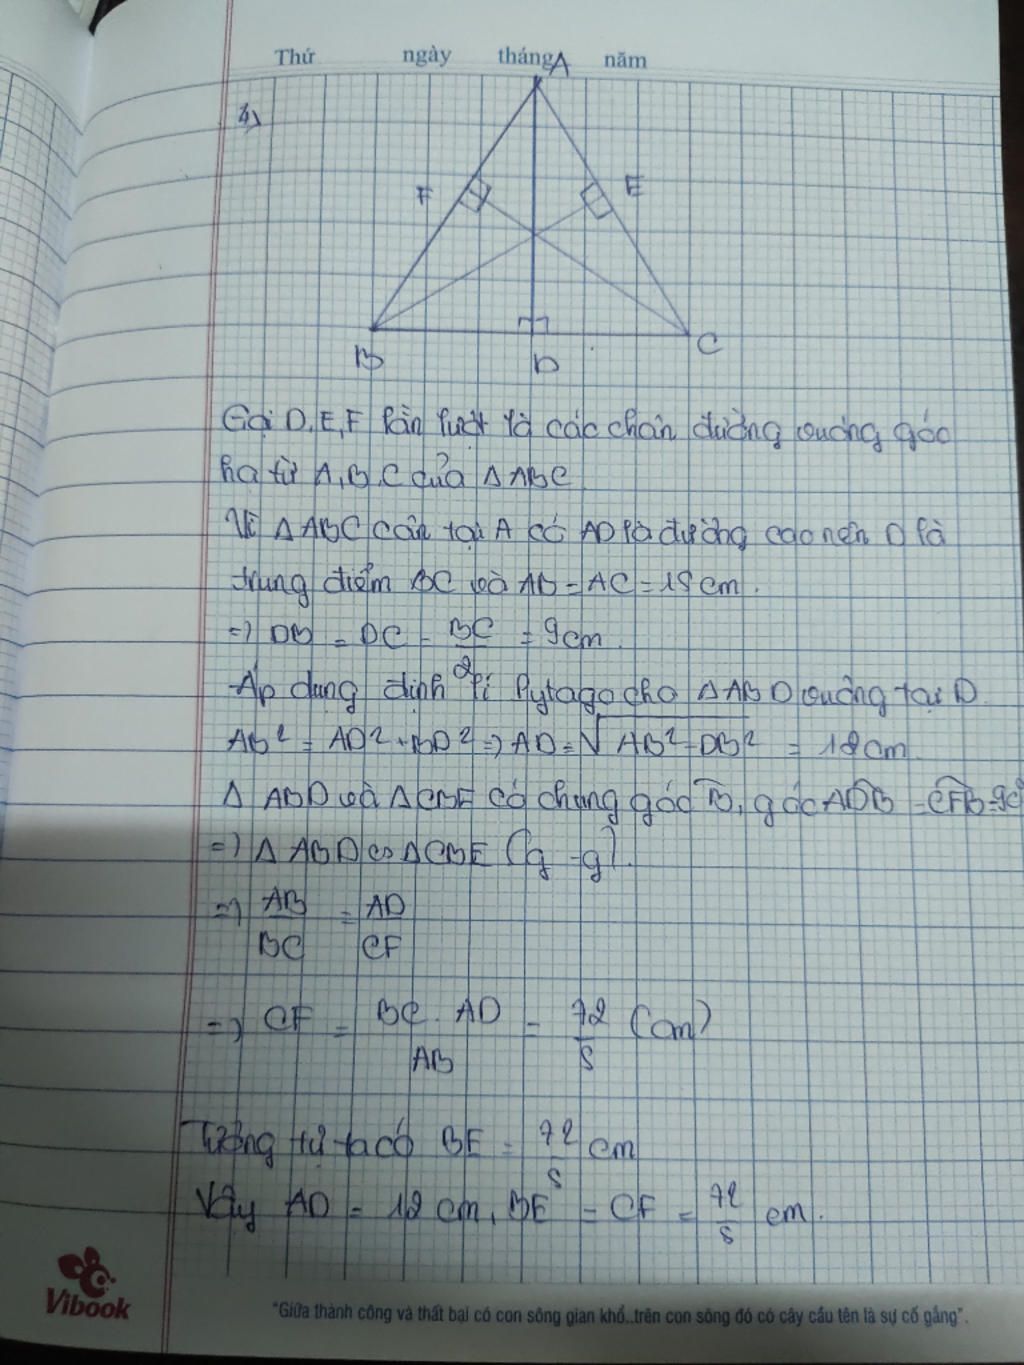 Thứ ngày tháng năm
A
4)
F E
B D C
Gọi D, E, F lần lượt là các chân đường vuông góc
hạ từ A, B, C của Δ ABC
Vì Δ ABC cân tại A có AD là đường cao nên D là
trung điểm BC và AB = AC = 15 cm.
=> DB = DC = BC/2 = 9cm.
Áp dụng định lí Pytago cho Δ ABD vuông tại D.
AB² = AD² + BD² => AD = √AB² - DB² = 12 cm
Δ ABD và Δ CBF có chung góc B, góc ADB = CFB = 90°
=> Δ ABD ∽ Δ CBF (g - g).
=> AB/BC = AD/CF
=> CF = BC. AD/AB = 72/5 (cm)
Tương tự ta có BE = 72/5 cm
Vậy AD = 12 cm, BE = CF = 72/5 cm.
Vibook
"Giữa thành công và thất bại có con sông gian khổ..trên con sông đó có cây cầu tên là sự cố gắng".